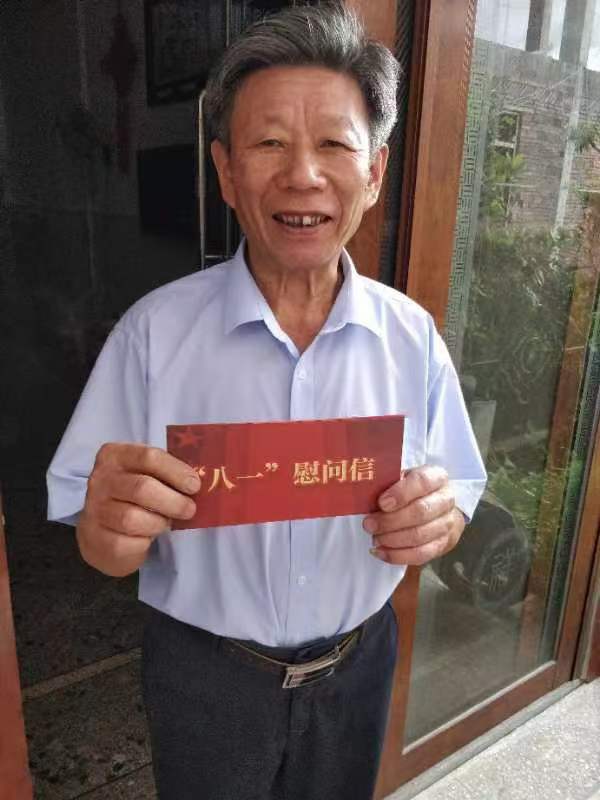 “八一”慰问信